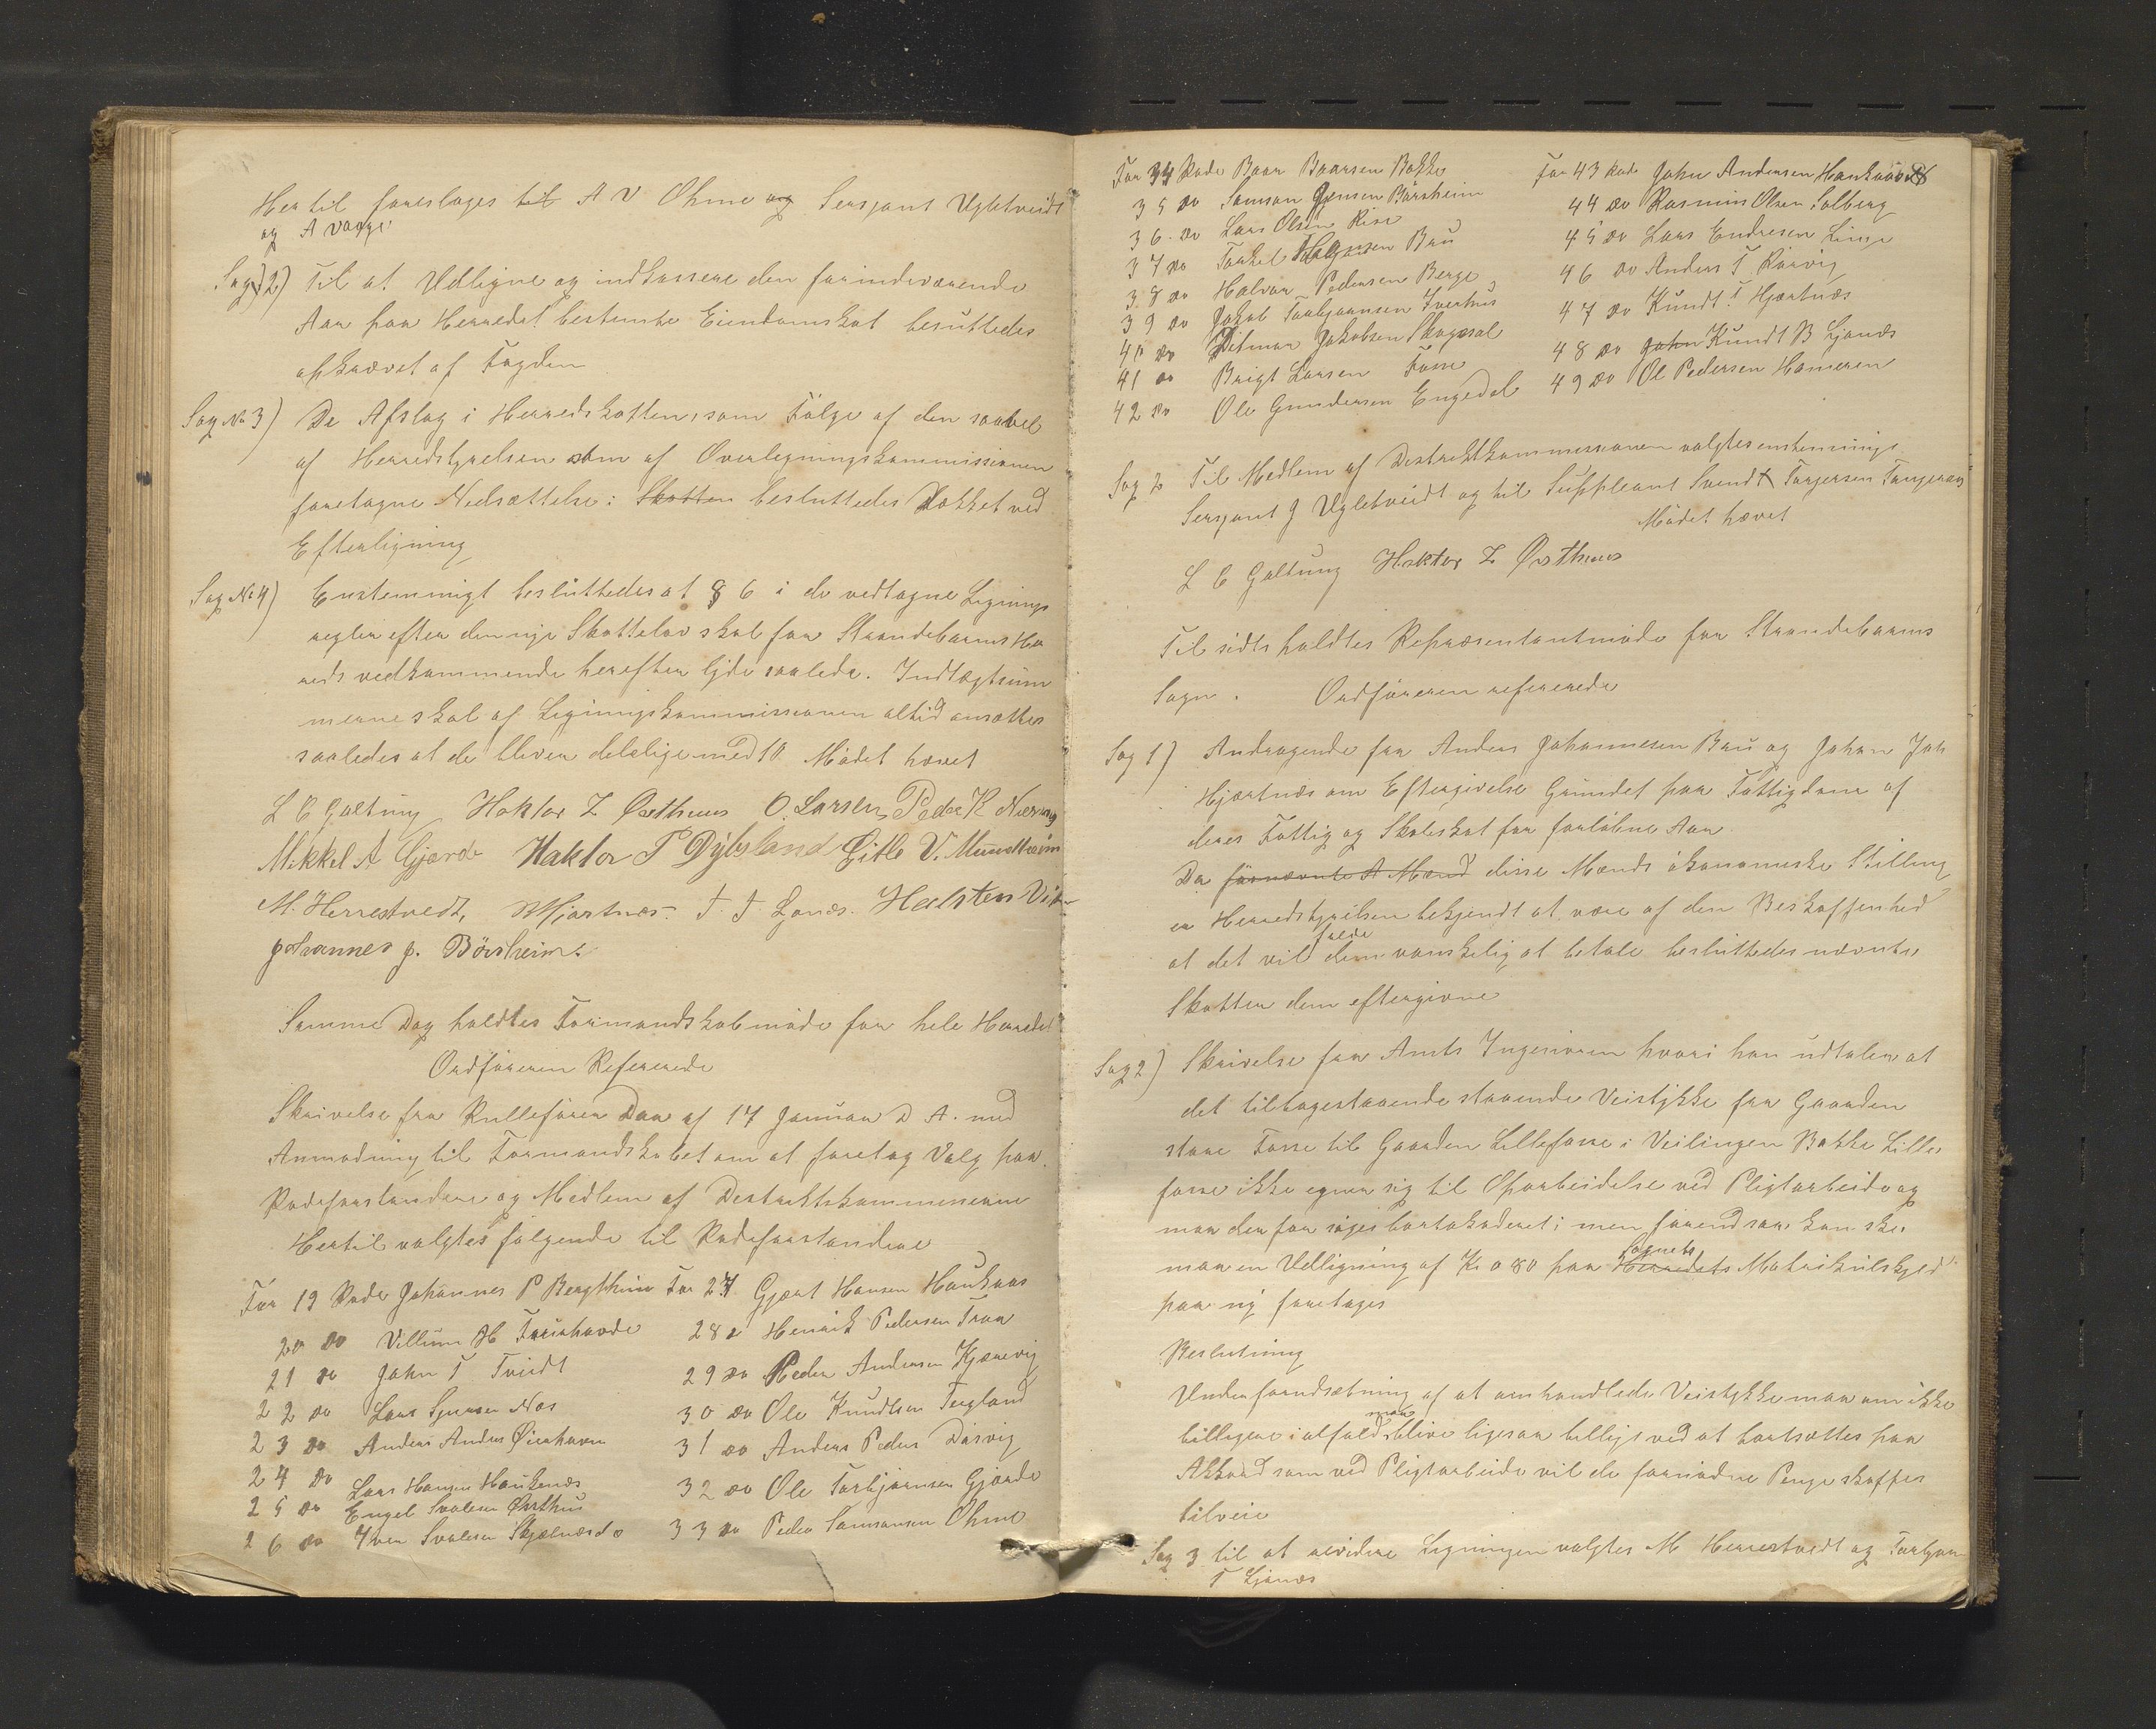 Her til foreslages til A V Ohme og Sersjant Ugletveidt
og A Vaage
Sag 2) Til at Udligne og indkassere den for indeværende
Aar paa Herredet bestemte Eiendomskat besuttedes
afkrævet af Fogden
Sag No 3) De Afslag i Herredskatten, som Følge af den saavel
af Herredstyrelsen som af Overligningskommissionen
foretagne Nedsættelse i Skatten besluttedes Dækket ved
Efterligning
Sag No 4) Enstemmigt besluttedes at § 6 i de vedtagne Lignings
regler efter den nye Skattelov skal for Strandebarms Her
reds vedkommende herefter lyde saalede. Indtægtsum
merne skal af Ligningskommissionen altid ansættes
saaledes at de bliver delelige med 10 Mødet hævet
L C Galtung Haktor Z Østhuus O. Larsen Peder K Nerevaag
Mikkel A Gjerde Haktor P Dybsland Gitle V. Mundheim
M. Herrestvedt, Hjartnæs. T. T. Lønes. Halsten Vik
Johannes J. Børsheim.
Samme Dag holdtes Formandskabmøde for hele Herredet
Ordføreren Refererede
Skrivelse fra Rullefører Daa af 17 Januar D A. med
Anmodning til Formandskabet om at foretag Valg paa
Rodeforstandere og Medlem af Destriktskommisionen
Hertil valgtes følgende til Rodeforstandere
For 19 Rode Johannes P Bergthun For 27 Gjert Hansen Haukaas
20 Do Villum H Furuhovde 28 Do Henrik Pedersen Traa
21 Do John T Tveidt 29 Do Peder Andersen Kjærevig
22 Do Lars Sjursen Nes 30 Do Ole Knudtsen Teigland
23 Do Anders Anders Øierhavn 31 Do Anders Peders Dørvig
24 Do Lars Hansen Haukenæs 32 Do Ole Torbjørnsen Gjerde
25 Do Engel Svalesen Østhus 33 Do Peder Samsonsen Ohme
26 Do Iver Svalesen Skjelnæsdo
For 34 Rode Baar Baarsen Bakke For 43 Rode John Andersen Haukaas
35 Do Samson Jensen Børsheim 44 Do Rasmus Olsen Solberg
36 Do Lars Olsen Risa 45 Do Lars Endresen Linge
37 Do Torkel Helgesen Bru 46 Do Anders T Rørvig
38 Do Halvor Pedersen Berge 47 Do Kundt T Hjærtnæs
39 Do Jakob Torbjørnsen Tverhus 48 Do John Kundt B Ljonæs
40 Do Ditman Jakobsen Skogesal 49 Do Ol Pedersen Hameren
41 Do Brigt Larsen Fosse
42 Do Ole Gundersen Engedal
Sag 2 Til Medlem af Destriktkommissionen valgtes enstemmings
Sersjant J Ugletveidt og til Suppleant Svendt Torgersen Tangeraas
Mødet hævet
L C Galtung Haktor Z Østhuus
Til sidts holdtes Repræsentantmøde for Strandebarms
Sogn. Ordføreren refererede
Sag 1) Andragende fra Anders Johannesen Bru og Johan Joh
Hjærtnæs om Eftergivelse Grundet paa Fattigdom af
deres Fattig og Skoleskat for forløbne Aar
Da førnævnte A Mænd disse Mænds økonomiske Stilling
er Herredstyrelsen bekjendt at være af den Beskaffenhed
at det vil falde dem vanskelig at betale besluttedes nævnte
Skatter dem eftergivne
Sag 2) Skrivelse fra Amts Ingeniøren hvori han udtaler at
det tilbagestaaende staaende Veistykke fra Gaarden
store Fosse til Gaarden Lillefosse i Veilingen Bakke Lille
fosse ikke egner sig til Oparbeidelse ved Pligtarbeide og
maa der for søges bortakoderet; men førend saa kan ske
maa en Udligning af Kr 0 80 paa Herredets Sognets Matrikulskyld
paa ny foretages
Beslutning
Under forudsætning af at omhandlede Veistykke maa om ikke
billigere i alfald maa blive ligesaa billigt ved at bortsættes paa
Akkord som ved Pligtarbeide vil de fornødne Penge skaffes
tilveie
Sag 3 til at revidere Ligningen valgtes M Herrestvedt og Torbjørn
T Ljonæs